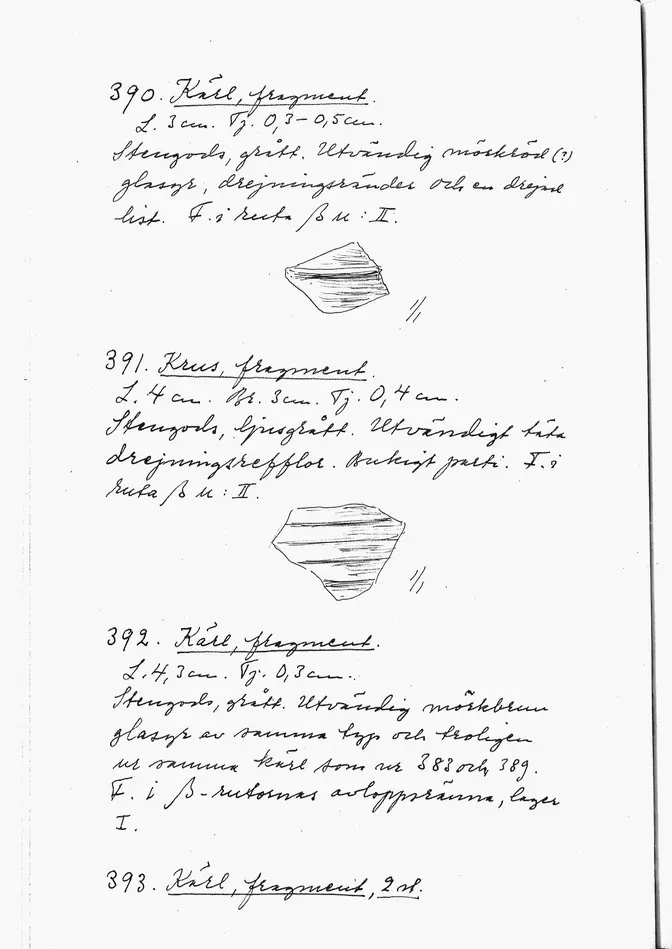 390. Kärl, fragment.
L. 3 cm. Tj. 0,3–0,5 cm.
Stengods, grått. Utvändig mörkröd (?)
glasyr, drejningsränder och en drejad
list. F. i ruta ß u : II.
1/1
391. Krus, fragment.
L. 4 cm. Br. 3 cm. Tj. 0,4 cm.
Stengods, ljusgrått. Utvändigt täta
drejningsrefflor. Bukigt parti. F. i
ruta ß u : II.
1/1
392. Kärl, fragment.
L. 4,3 cm. Tj. 0,3 cm.
Stengods, grått. Utvändig mörkbrun
glasyr av samma typ och troligen
ur samma kärl som nr 383 och 389.
F. i ß-rutornas avloppsränna, lager
I.
393. Kärl, fragment, 2 st.